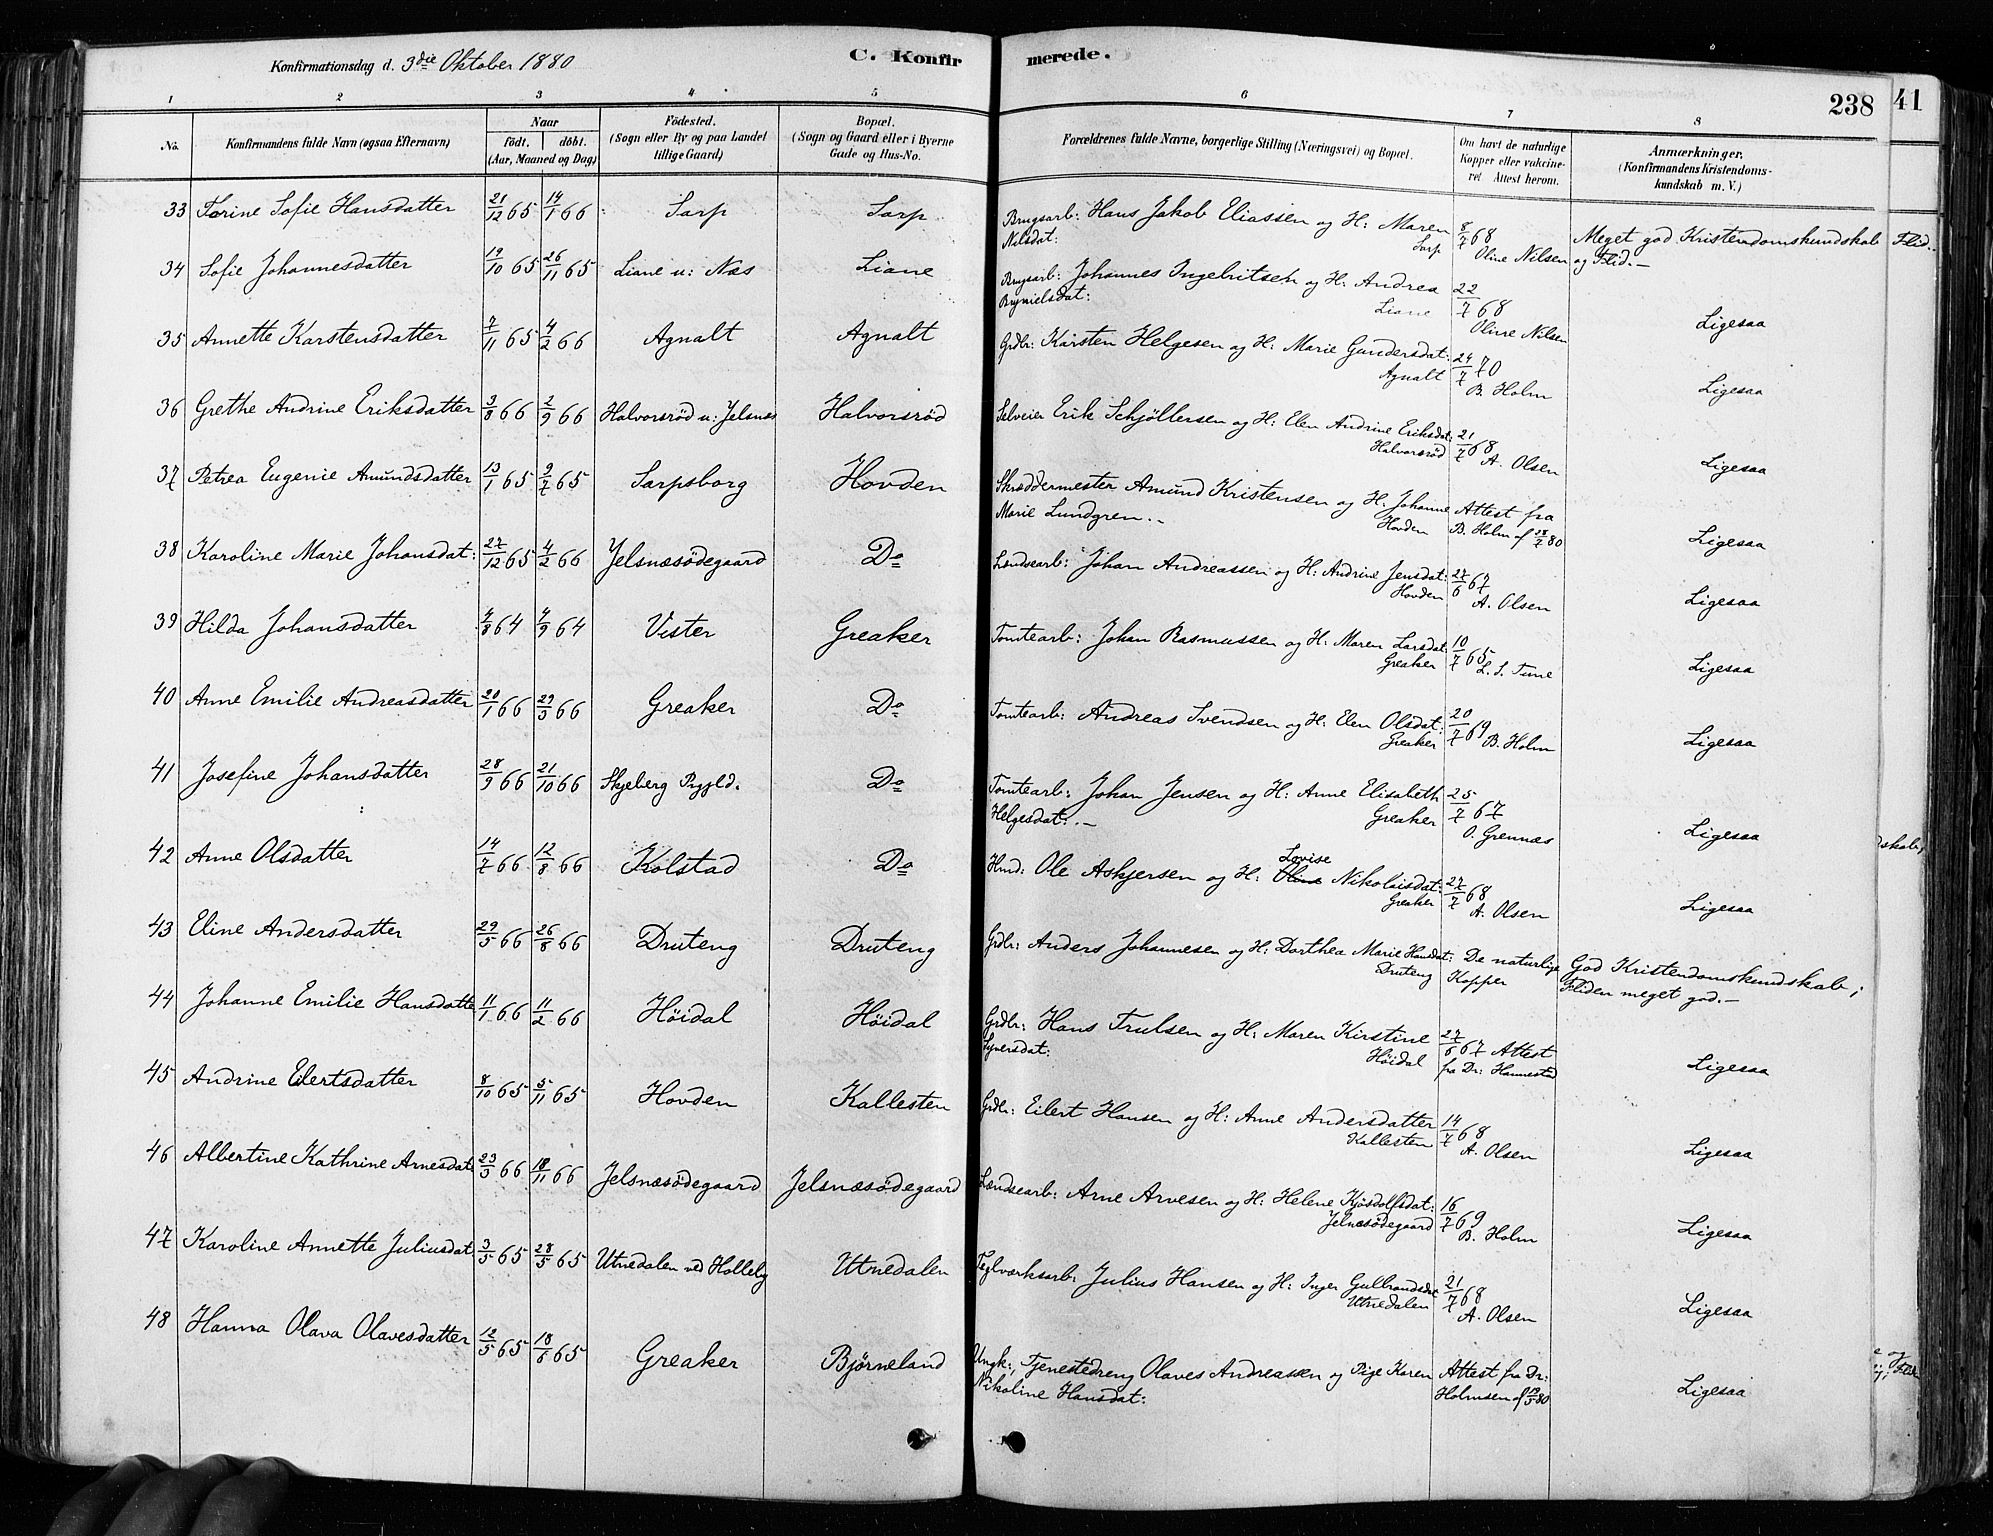 Konfirmationsdag d. 3die Oktober 1880 C. Konfir merede.
238 41
1 2 3 4 5 6 7 8
No. Konfirmandens fulde Navn (ogsaa Efternavn) Naar födt. döbt. (Aar, Maaned og Dag) Födested. (Sogn eller By og paa Landet tillige Gaard) Bopæl. (Sogn og Gaard eller i Byerne Gade og Hus-No. Forældrenes fulde Navne, borgerlige Stilling (Næringsvei) og Bopæl. Om havt de naturlige Kopper eller vakcineret Attest herom. Anmærkninger. (Konfirmandens Kristendomskundskab m. V.)
33 Torine Sofie Hansdatter 21/12 65 14/1 66 Sarp Sarp Brugsarb: Hans Jakob Eliassen og H: Maren Nilsdat: Sarp 8/7 68 Oline Nilsen Meget god Kristendomskundskab og Flid.-
34 Sofie Johannesdatter 19/10 65 26/11 65 Liane u: Næs Liane Brugsarb: Johannes Ingebritsen og H: Andrea Brynielsdat: Liane 22/7 68 Oline Nilsen Ligesaa
35 Annette Karstensdatter 7/11 65 4/2 66 Agnalt Agnalt Grdbr: Karsten Helgesen og H: Marie Gundersdat: Agnalt 24/7 70 B. Holm Ligesaa
36 Grethe Andrine Eriksdatter 3/8 66 2/9 66 Halvorsröd u: Jelsnes Halvorsröd Selveier Erik Schjöllersen og H: Elen Andrine Eriksdat: Halvorsröd 21/7 68 A. Olsen Ligesaa
37 Petrea Eugenie Amundsdatter 13/1 65 9/7 65 Sarpsborg Hovden Skræddermester Amund Kristensen og H. Johanne Marie Lundgren.- Hovden Attest fra B. Holm af 28/7 80 Ligesaa
38 Karoline Marie Johansdat: 27/12 65 4/2 66 Jelsnæsödegaard Do Lændsearb: Johan Andreassen og H: Andrine Jensdat: Hovden 27/6 67 A. Olsen Ligesaa
39 Hilda Johansdatter 4/8 64 4/9 64 Vister Greaker Tomtearb: Johan Rasmussen og H: Maren Larsdat: Greaker 10/7 65 L. S. Tune Ligesaa
40 Anne Emilie Andreasdatter 20/1 66 29/3 66 Greaker Do Tomtearb: Andreas Svendsen og H: Elen Olsdat: Greaker 20/7 69 B. Holm Ligesaa
41 Josefine Johansdatter 28/9 66 21/10 66 Skjeberg Prgjld. Do Tomtearb: Johan Jensen og H: Anne Elisabeth Helgesdat:.- Greaker 25/7 67 O. Grennæs Ligesaa
42 Anne Olsdatter 14/7 66 12/8 66 Kolstad Do Hmd: Ole Askjersen og H: Oline Lovise Nikolaisdat: Greaker 27/7 68 A. Olsen Ligesaa
43 Eline Andersdatter 29/5 66 26/8 66 Druteng Druteng Grdbr: Anders Johannesen og H: Dorthea Marie Hansdat: Druteng De naturlige Kopper God Kristendomskundskab; Fliden meget god.-
44 Johanne Emilie Hansdatte 11/1 66 11/2 66 Höidal Höidal Grdbr: Hans Trulsen og H: Maren Kirstine Syversdat: Höidal 27/6 67 Attest fra Dr: Hannestad Ligesaa
45 Andrine Eilertsdatter 8/10 65 5/11 65 Hovden Kallesten Grdbr: Eilert Hansen og H: Anne Andersdatter Kallesten 14/7 68 A. Olsen Ligesaa
46 Albertine Kathrine Arnesdat 23/3 66 18/11 66 Jelsnæsödegaard Jelsnæsödegaard Lændsearb: Arne Arvesen og H: Helene Kjösdolfsdat: Jelnæsödegaard 16/7 69 B. Holm Ligesaa
47 Karoline Annette Juliusdat 3/5 65 28/5 65 Utnedalen ved Holleby Utnedalen Teglværksarb: Julius Hansen og H: Inger Gulbrandsdat Utnedalen 21/7 68 A. Olsen Ligesaa
48 Hanna Olava Olavesdatter 12/5 65 18/6 65 Greaker Bjørneland Ungk: Tjenestedreng Olaves Andreassen og Pige Karen Nikoline Hansdat: Attest fra Dr: Holmsen af 19/5 80 Ligesaa
Flid.